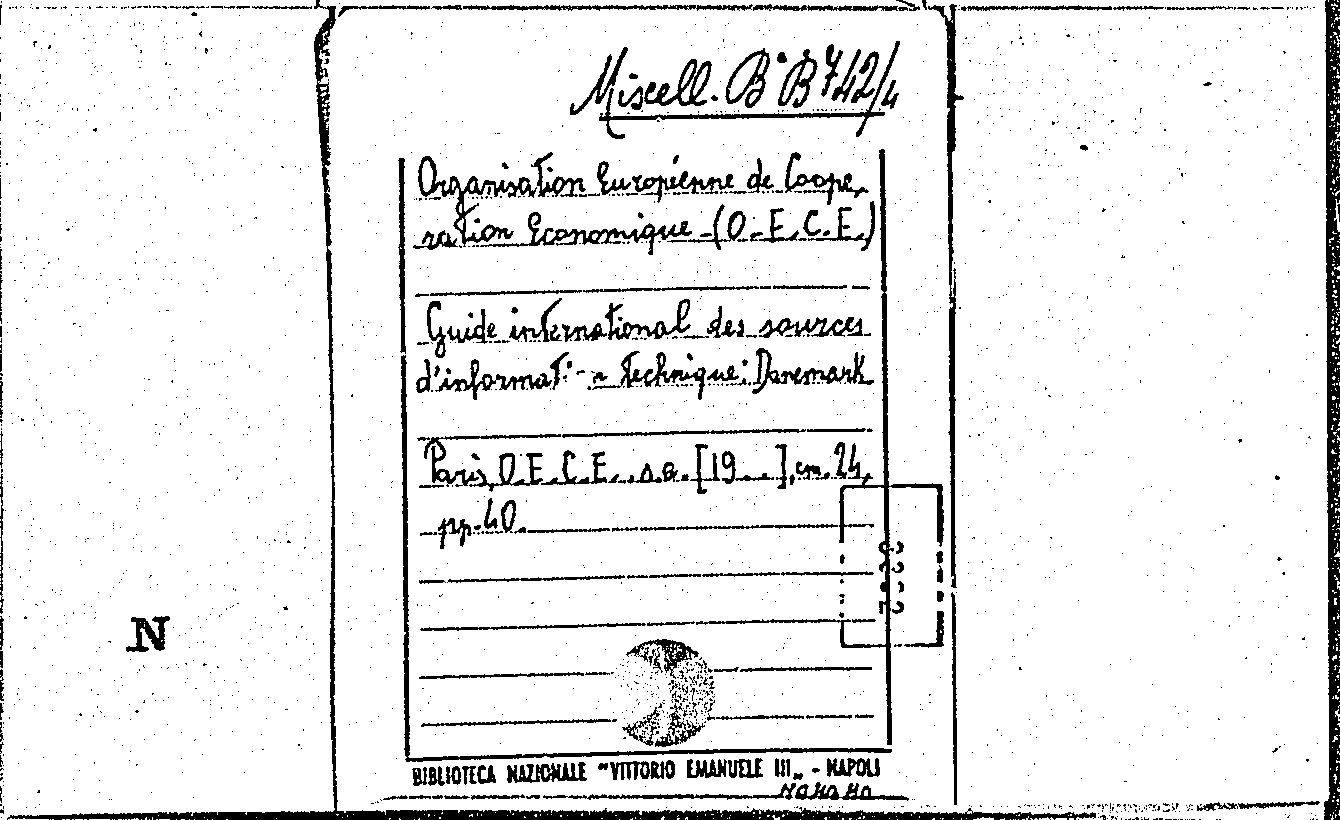 Miscell. B° B 742/4
Organisation Européenne de Coope,
ration Economique - (O.E.C.E.)
Guide international des sources
technique: Danemark
Paris, O.E.C.E., s.a. [19..], cm. 24,
pp. 40.
N
BIBLIOTECA NAZIONALE "VITTORIO EMANUELE III„ - NAPOLI